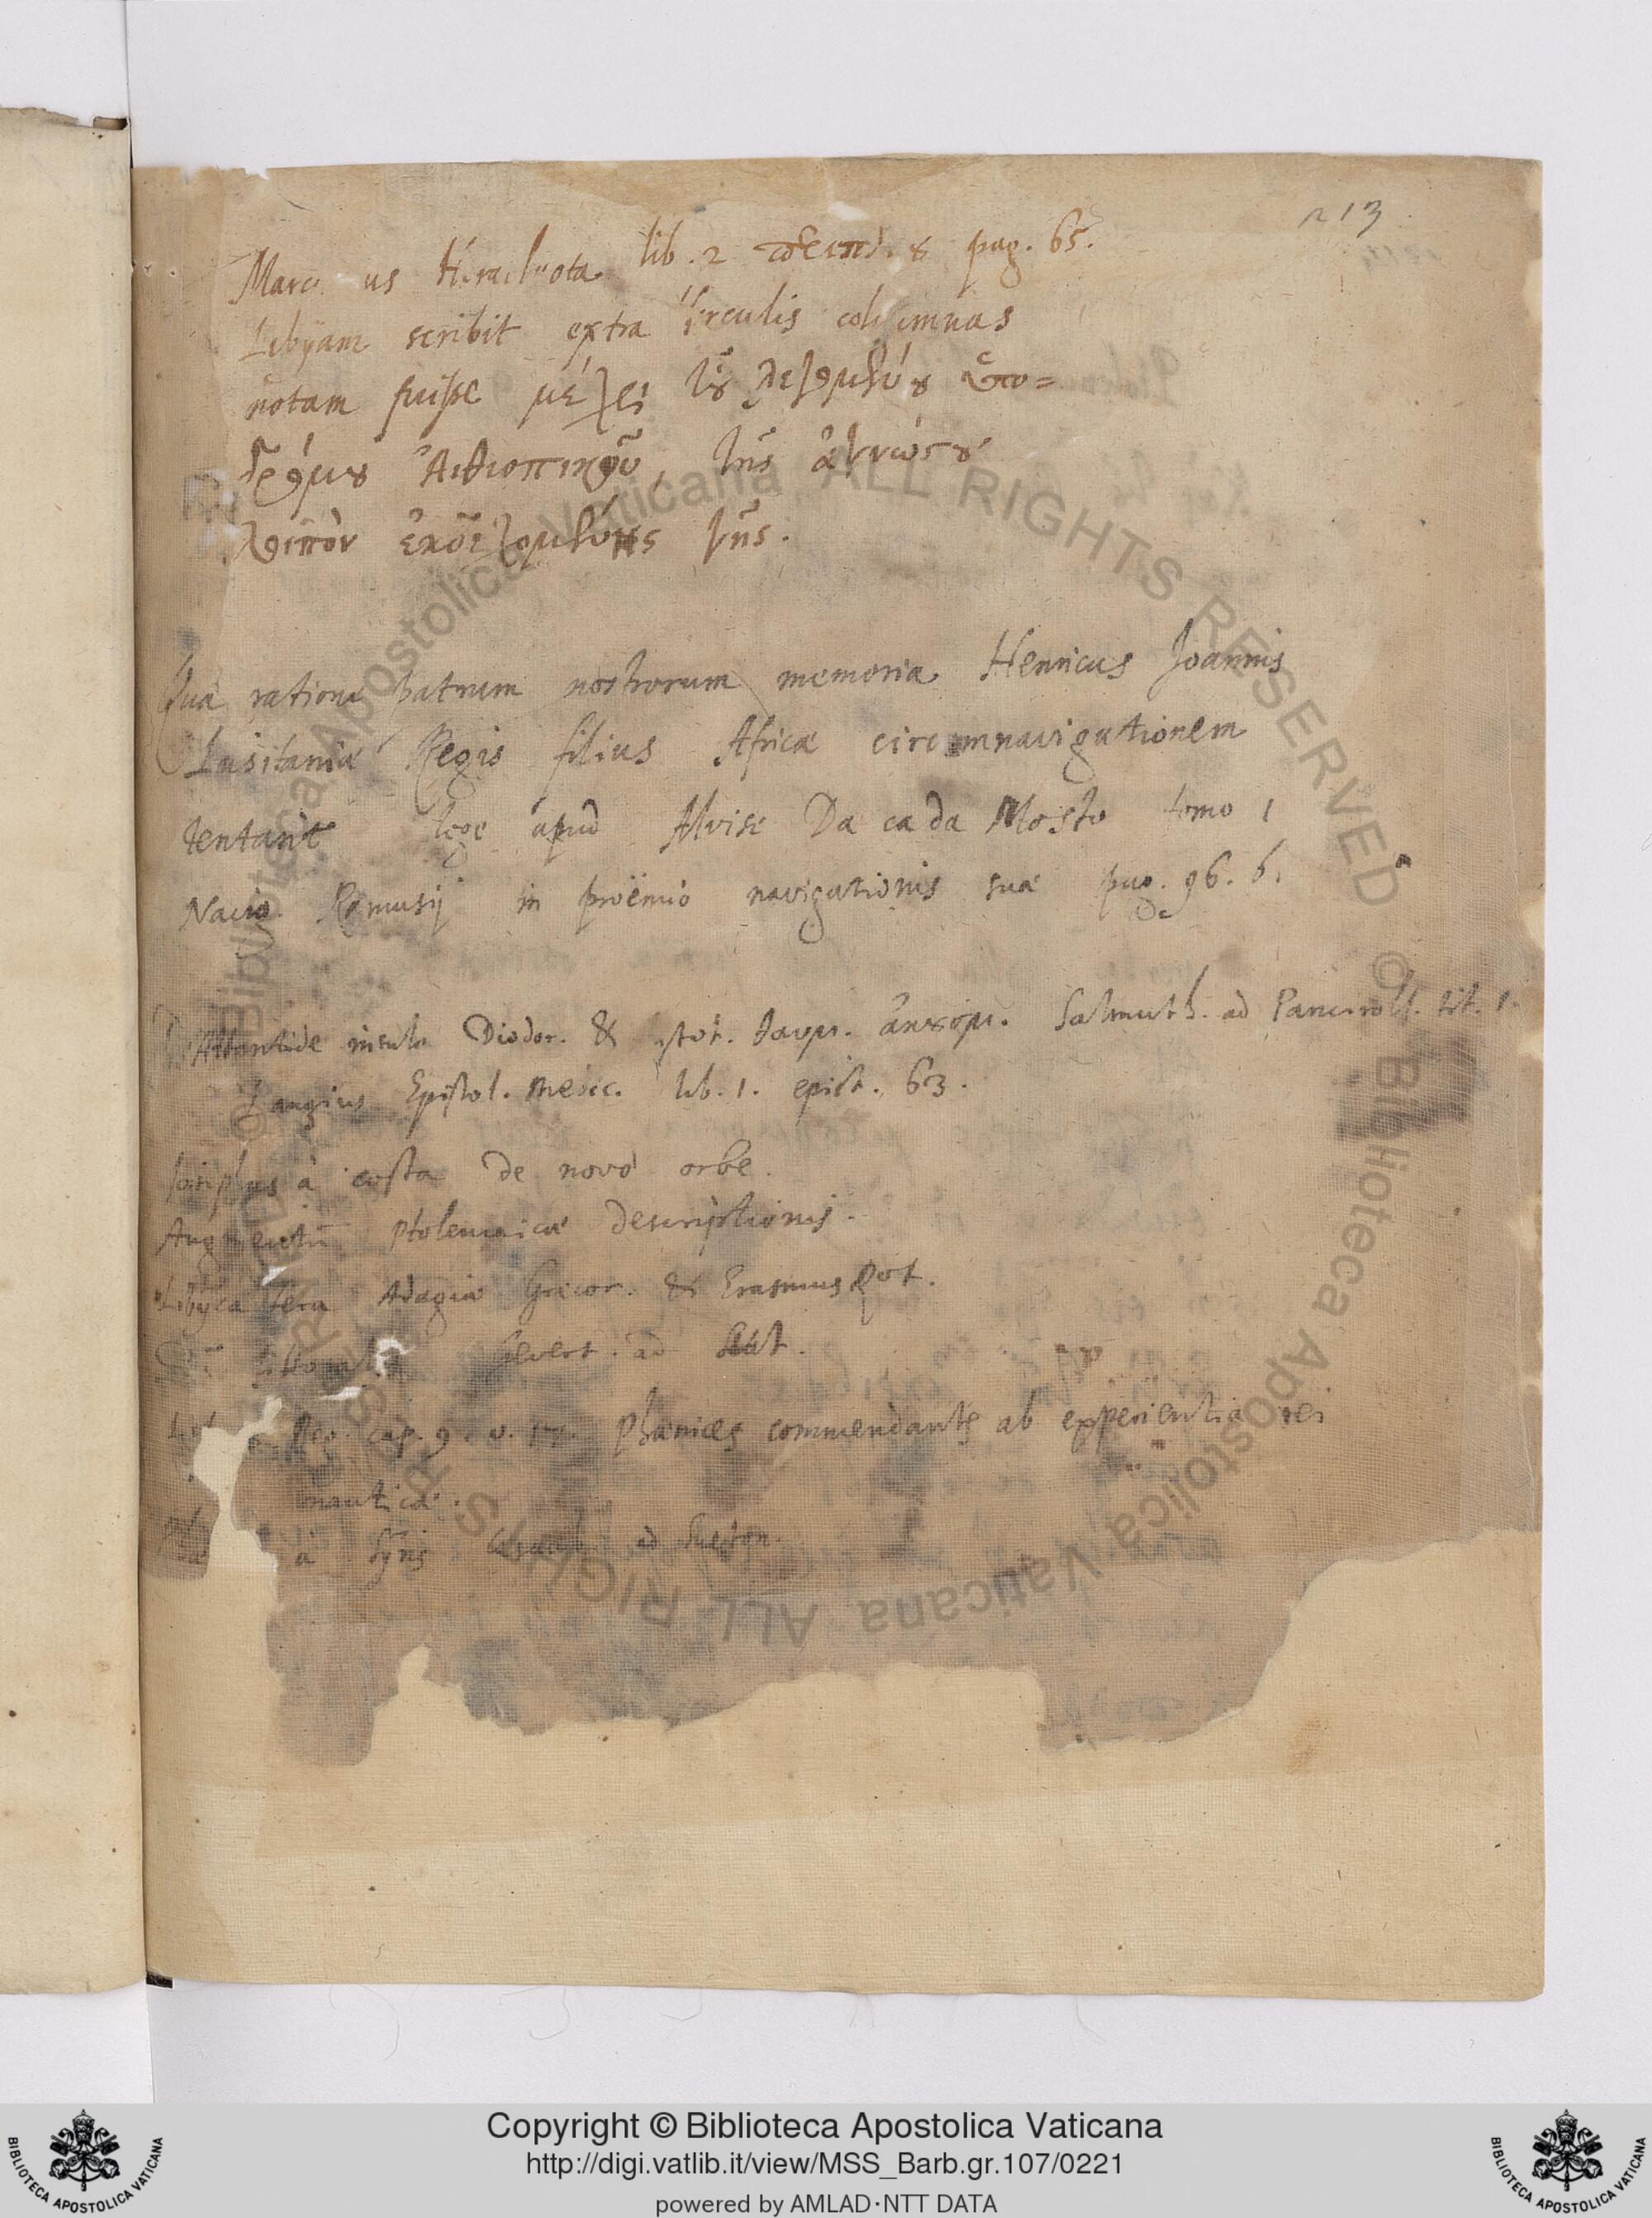 213
Marci us Heracleota lib. 2 περίπλου pag. 65.
Libyam scribit extra Herculis columnas
notam fuisse μέχρι τοῦ λεγομένου ὑπο=
δρόμου Αἰθιοπικοῦ, τῆς ἀγνώστου
λοιπὸν ἐκδεχομένης γῆς.
Qua ratione patrum nostrorum memoria Henricus Joannis
Lusitaniæ Regis filius Africæ circumnavigationem
tentarit lege apud Alvise Da ca da Mosto tomo 1
Navig. Ramusij in proëmio navigationis suæ pag. 96. b.
Atlantide insula Diodor. & θαυμ. ἀκουσμ. Salmuth. ad Panciroll. tit. 1.
Langius Epistol. medic. lib. 1. epist. 63.
Iosephus à costa de novo orbe.
Augmentũ Ptolemaicæ descriptionis.
Libyca fera Adagia Græcor. & Erasmus Rot.
Gevert. ad Stat.
Reg. cap. 9. v. 27. Phœnices commendantr ab experientia rei
nauticæ.
à Tyriis Casaub. ad Sueton.
Copyright © Biblioteca Apostolica Vaticana
http://digi.vatlib.it/view/MSS_Barb.gr.107/0221
powered by AMLAD·NTT DATA
BIBLIOTECA APOSTOLICA VATICANA
BIBLIOTECA APOSTOLICA VATICANA
© Biblioteca Apostolica Vaticana ALL RIGHTS RESERVED
© Biblioteca Apostolica Vaticana ALL RIGHTS RESERVED